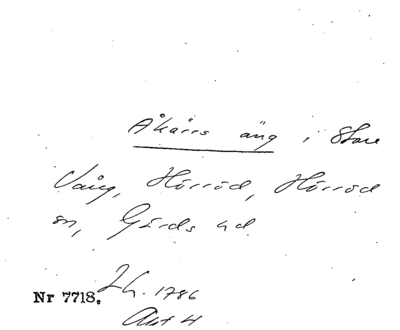 Åkärrs äng i Stora
Vång, Hörröd, Hörröd
sn, Gärds hd
Lh. 1786
Nr 7718.
Akt 4